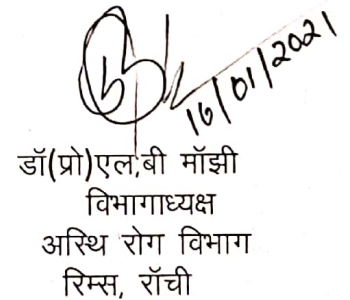 16/01/2021
डॉ(प्रो)एल,बी मॉझी
विभागाध्यक्ष
अस्थि रोग विभाग
रिम्स, रॉची